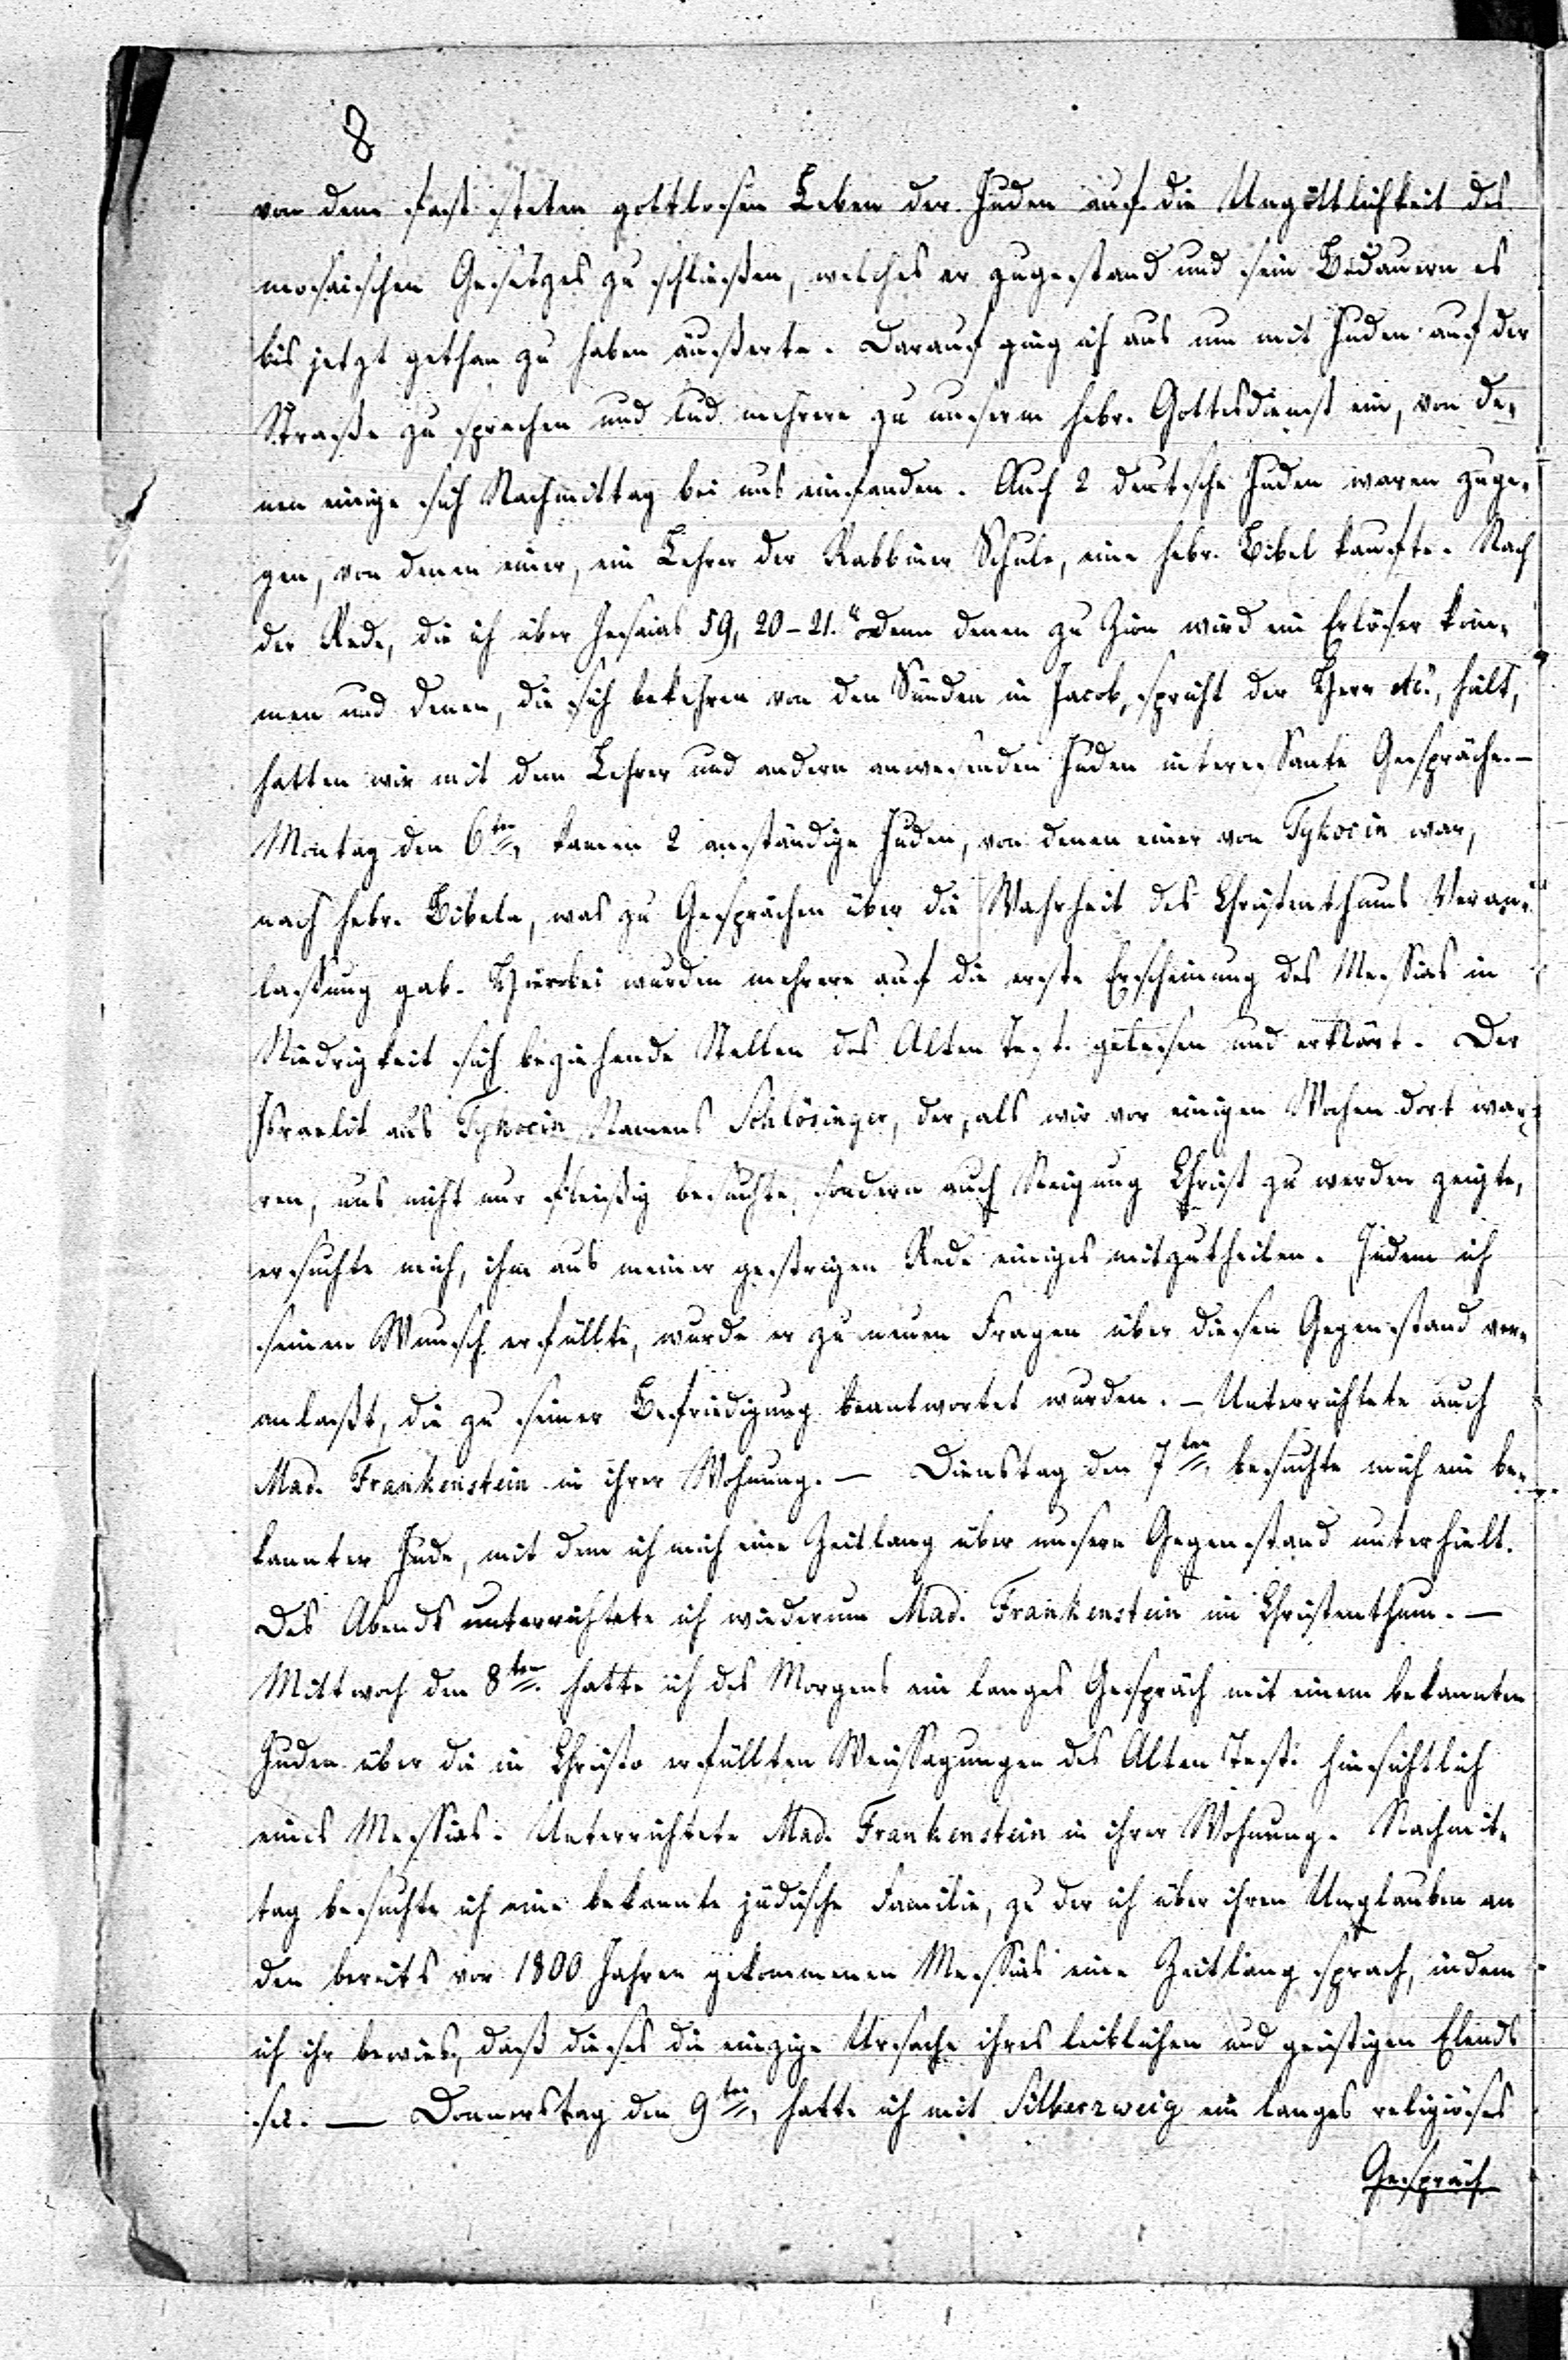 8
von dem fast steten gottlosen Leben der Juden auf die Ungöttlichkeit des
mosaischen Gesetzes zu schließen, welches er zugestand und sein Bedauern es
bis jetzt gethan zu haben äußerte. Darauf ging ich aus um mit Juden auf der
Straße zu sprechen und lud mehrere zu unserm hebr. Gottesdienst ein, von de-
nen einige sich Nachmittag bei uns einfanden. Auch 2 deutsche Juden waren zuge-
gen, von denen einer, ein Lehrer der Rabbiner Schule, eine hebr. Bibel kaufte. Nach
der Rede, die ich über Jesaias 59, 20-21. "denn denen zu Zion wird ein Erlöser kom-
men und denen, die sich bekehren von den Sünden in Jacob, spricht der Herr etc", hielt,
hatten wir mit dem Lehrer und andern anwesenden Juden interessante Gespräche. —
Montag den 6ten, kamen 2 anständige Juden, von denen einer von Tykocin war,
nach hebr. Bibeln, was zu Gesprächen über die Wahrheit des Christenthums Veran-
lassung gab. Hierbei wurden mehrere auf die erste Erscheinung des Messias in
Niedrigkeit sich beziehende Stellen des Alten Test. gelesen und erklärt. Der
Israelit aus Tykocin, Namens Schlösinger, der, als wir vor einigen Wochen dort wa-
ren, uns nicht nur fleißig besuchte, sondern auch Neigung Christ zu werden zeigte,
ersuchte mich, ihm aus meiner gestrigen Rede einiges mitzutheilen. Indem ich
seinen Wunsch erfüllte, wurde er zu neuen Fragen über diesen Gegenstand ver-
anlaßt, die zu seiner Befriedigung beantwortet wurden. — Unterrichtete auch
Mad. Frankenstein in ihrer Wohnung. — Dienstag den 7ten, besuchte mich ein be-
kannter Jude, mit dem ich mich eine Zeitlang über unsern Gegenstand unterhielt.
Des Abends unterrichtete ich wiederum Mad. Frankenstein im Christenthum. —
Mittwoch den 8ten. hatte ich des Morgens ein langes Gespräch mit einem bekannten
Juden über die in Christo erfüllten Weissagungen des Alten Test. hinsichtlich
eines Messias. Unterrichtete Mad. Frankenstein in ihrer Wohnung. Nachmit-
tag besuchte ich eine bekannte jüdische Familie, zu der ich über ihren Unglauben an
den bereits vor 1800 Jahren gekommenen Messias eine Zeitlang sprach, indem
ich ihr bewies, daß dieses die einzige Ursache ihres leiblichen und geistigen Elends
sei. — Donnerstag den 9ten, hatte ich mit Silberzweig ein langes religiöses
Gespräch